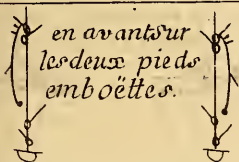 en avant sur
les deux pieds
emboëttes.